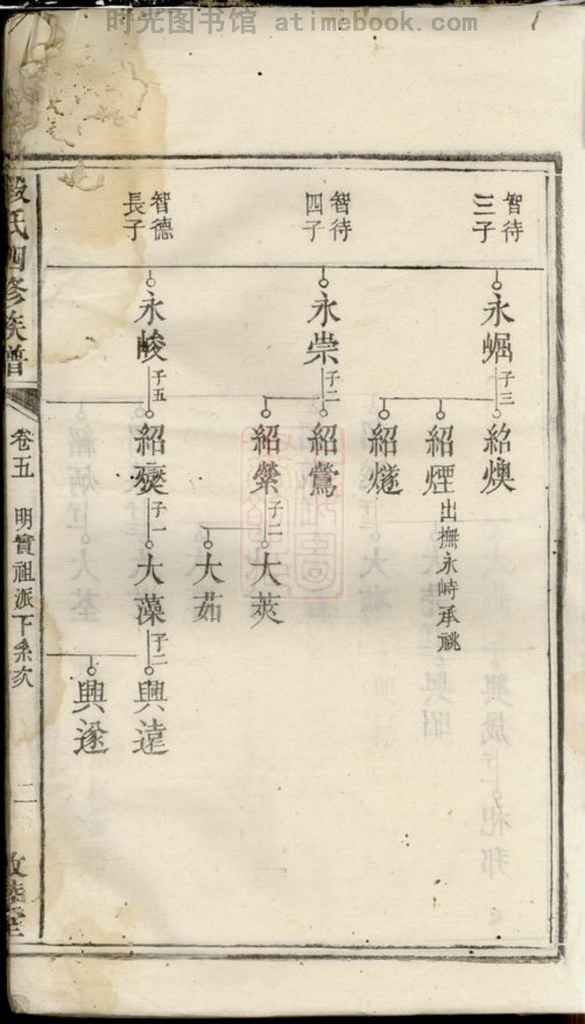 时光图书馆 atimebook.com
智待
三子
永崛
子三
紹燠
紹煙
出撫永峙承祧
紹燧
智待
四子
永崇
子二
紹鶯
紹縈
子二
大莢
大茹
智德
長子
永峻
子五
紹燮
子一
大藻
子二
興遠
興遂
段氏四修族譜
卷五
明實祖派下系次
二
敦睦堂